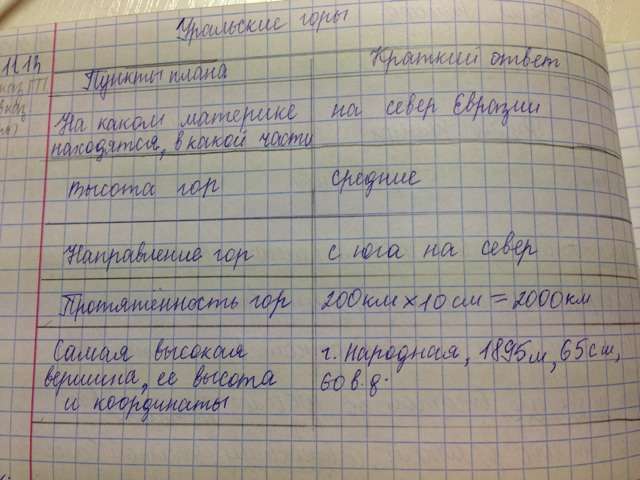 Уральские горы
Пункты плана
Краткий ответ
На каком материке
находятся, в какой части
на север Евразии
Высота гор
средние
Направление гор
с юга на север
Протяжённость гор
200км × 10см = 2000км
Самая высокая
вершина, её высота
и координаты
г. Народная, 1895м, 65сш,
60в.д.